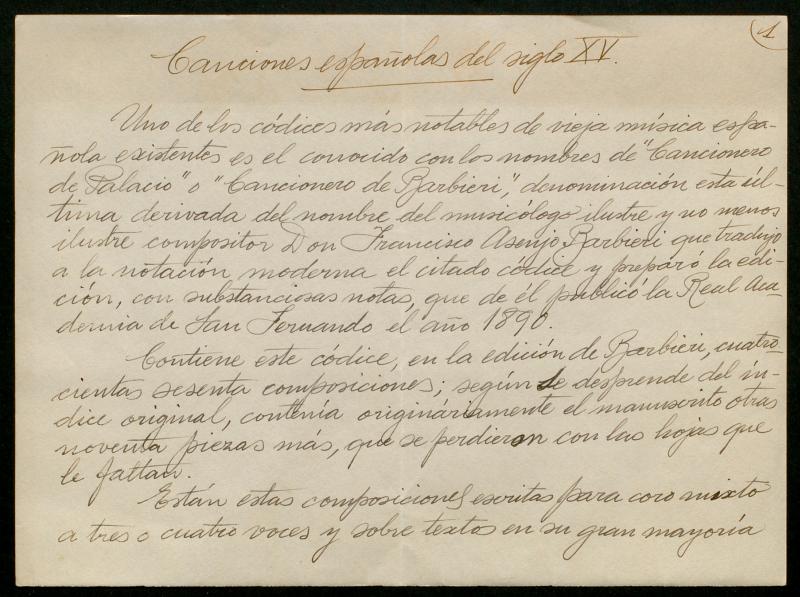 1
Canciones españolas del siglo XV.
Uno de los códices más notables de vieja música espa-
ñola existentes es el conocido con los nombres de "Cancionero
de Palacio" o "Cancionero de Barbieri", denominación esta úl-
tima derivada del nombre del musicólogo ilustre y no menos
ilustre compositor Don Francisco Asenjo Barbieri que tradujo
a la notación moderna el citado códice y preparó la edi-
ción, con substanciosas notas, que de él publicó la Real Aca-
demia de San Fernando el año 1890.
Contiene este códice, en la edición de Barbieri, cuatro-
cientas sesenta composiciones; según se desprende del ín-
dice original, contenía originariamente el manuscrito otras
noventa piezas más, que se perdieron con las hojas que
le faltan.
Están estas composiciones escritas para coro mixto
a tres o cuatro voces y sobre textos en su gran mayoría